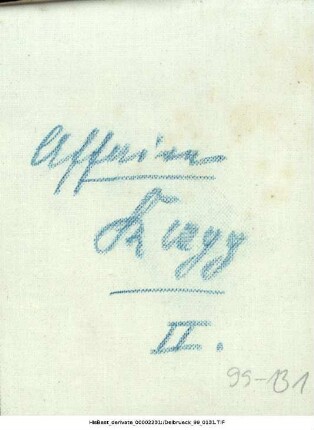 Affaire
II.
99-131
HisBest_derivate_00002231/Delbrueck_99_0131.TIF